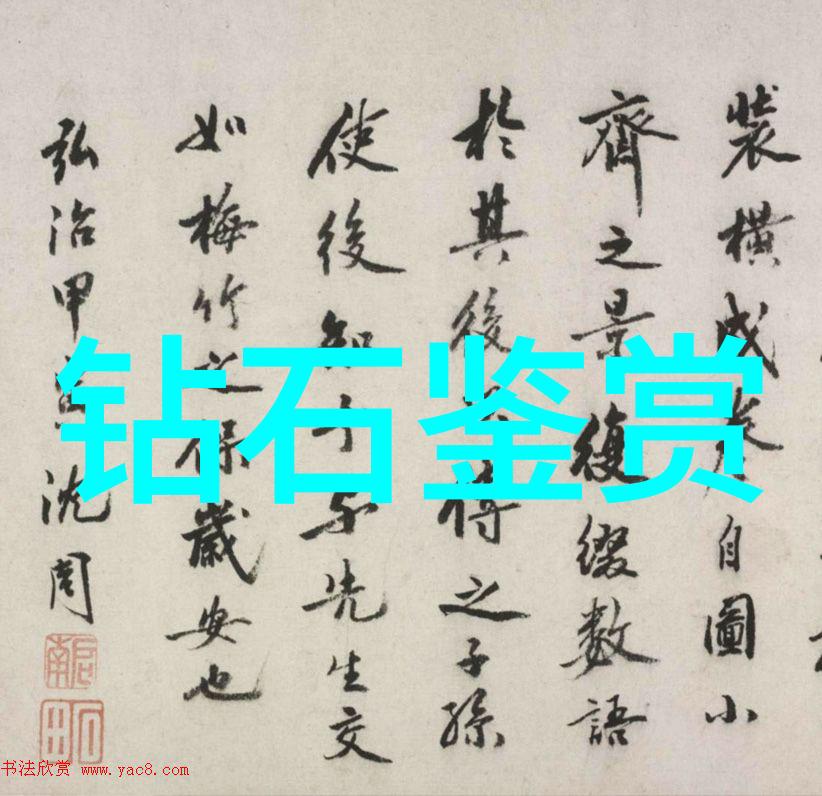 钻石鉴赏
裝橫成自圖小
齊之景復綴數語
於其後之子孫
使後知予与先生交
如梅竹之保歲安也
弘治甲沈周
書法欣赏 www.yac8.com